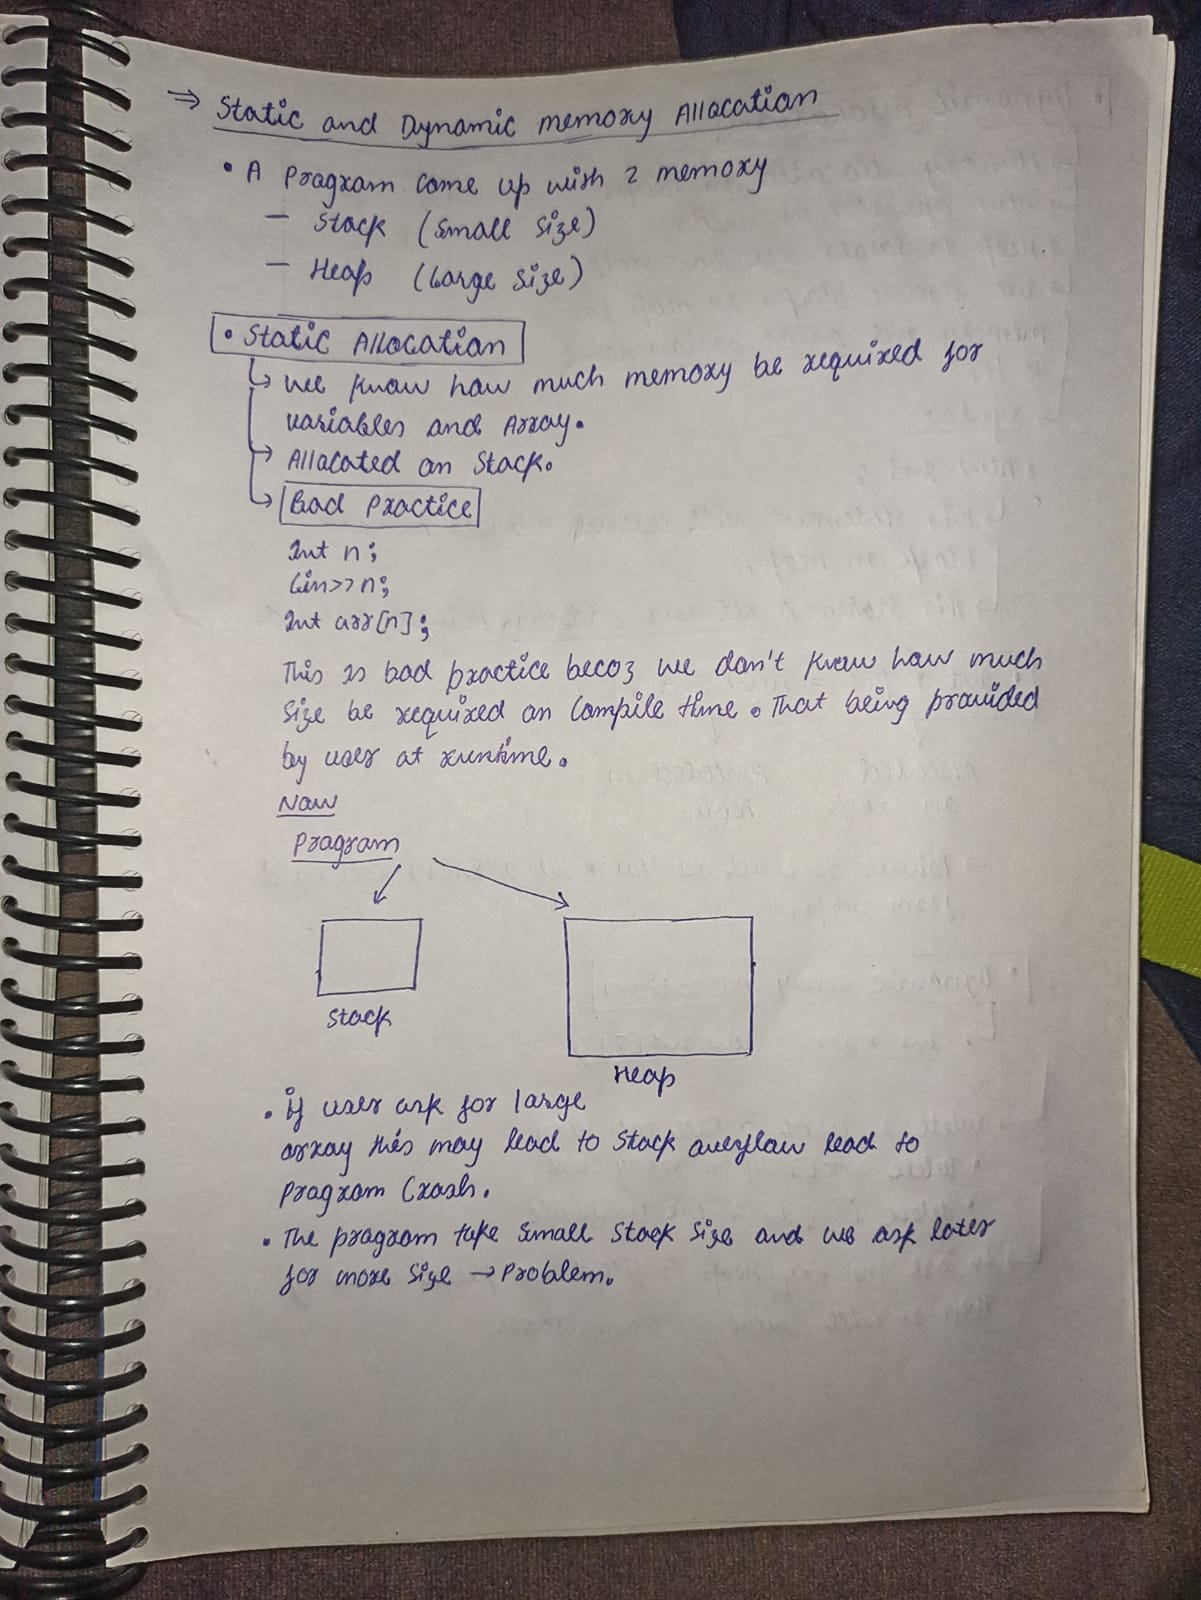 ⇒ Static and Dynamic memory Allocation
• A Program come up with 2 memory
– Stack (Small Size)
– Heap (Large Size)
• Static Allocation
↳ we know how much memory be required for
variables and Array.
→ Allocated on Stack.
↳ Bad Practice
Int n;
Cin>>n;
Int arr[n];
This is bad practice becoz we don't know how much
Size be required on Compile time. That being provided
by user at runtime.
Now
Program
Stack
Heap
• If user ask for large
array this may lead to Stack overflow lead to
Program Crash.
• The program take Small Stack Size and we ask later
for more Size → Problem.